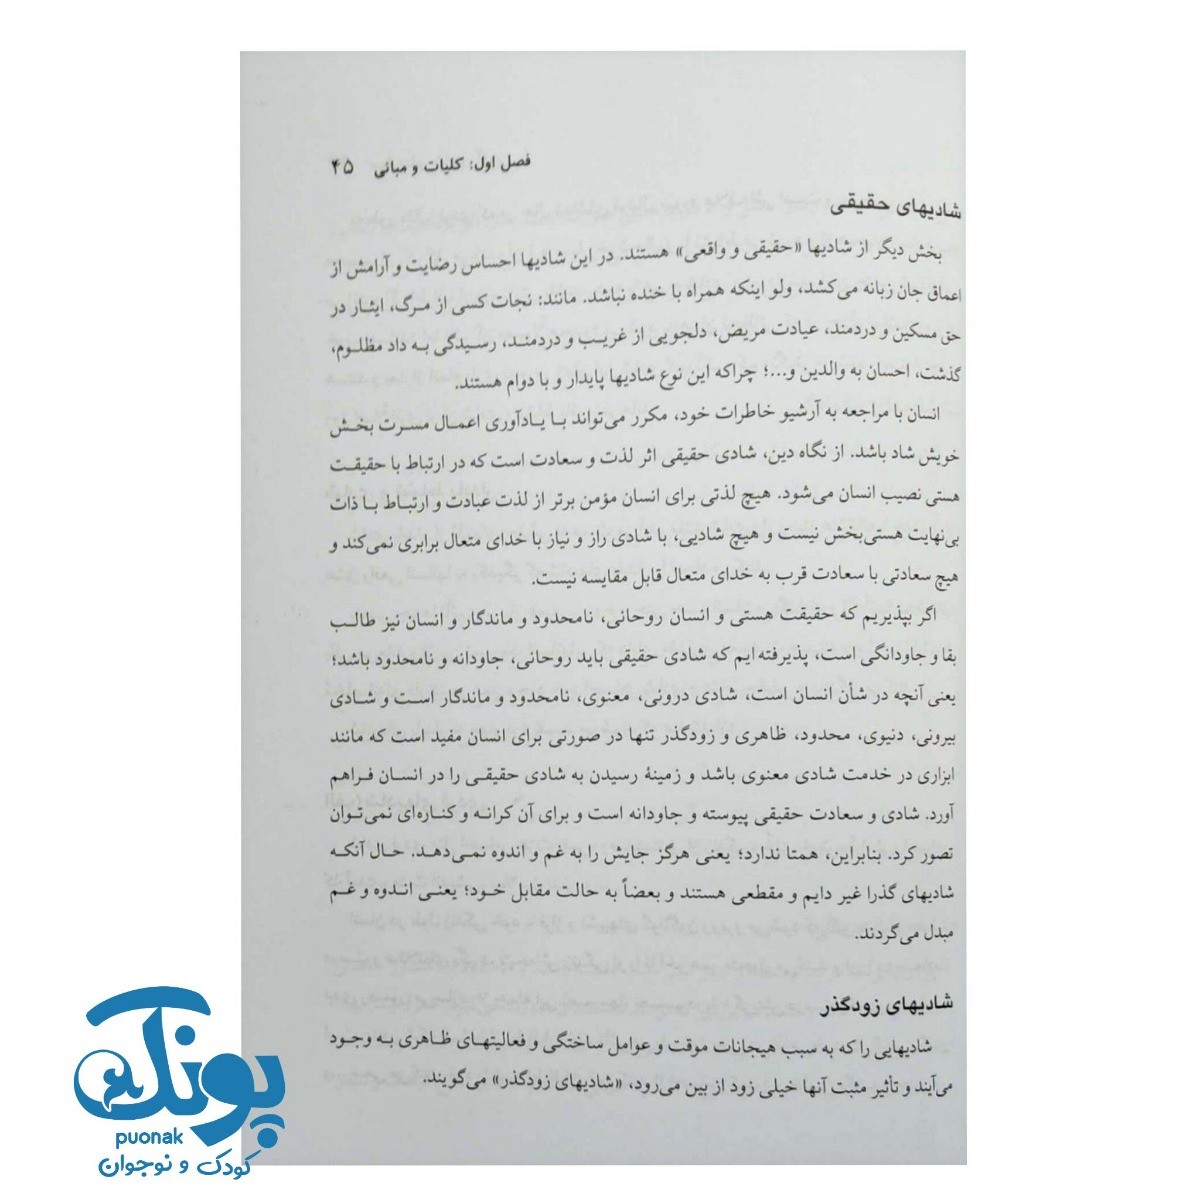 فصل اول: کلیات و مبانی ۴۵
شادیهای حقیقی
بخش دیگر از شادیها «حقیقی و واقعی» هستند. در این شادیها احساس رضایت و آرامش از
اعماق جان زبانه می‌کشد، ولو اینکه همراه با خنده نباشد. مانند: نجات کسی از مرگ، ایثار در
حق مسکین و دردمند، عیادت مریض، دلجویی از غریب و دردمند، رسیدگی به داد مظلوم،
گذشت، احسان به والدین و...؛ چراکه این نوع شادیها پایدار و با دوام هستند.
انسان با مراجعه به آرشیو خاطرات خود، مکرر می‌تواند با یادآوری اعمال مسرت بخش
خویش شاد باشد. از نگاه دین، شادی حقیقی اثر لذت و سعادت است که در ارتباط با حقیقت
هستی نصیب انسان می‌شود. هیچ لذتی برای انسان مؤمن برتر از لذت عبادت و ارتباط با ذات
بی‌نهایت هستی‌بخش نیست و هیچ شادیی، با شادی راز و نیاز با خدای متعال برابری نمی‌کند و
هیچ سعادتی با سعادت قرب به خدای متعال قابل مقایسه نیست.
اگر بپذیریم که حقیقت هستی و انسان روحانی، نامحدود و ماندگار و انسان نیز طالب
بقا و جاودانگی است، پذیرفته ایم که شادی حقیقی باید روحانی، جاودانه و نامحدود باشد؛
یعنی آنچه در شأن انسان است، شادی درونی، معنوی، نامحدود و ماندگار است و شادی
بیرونی، دنیوی، محدود، ظاهری و زودگذر تنها در صورتی برای انسان مفید است که مانند
ابزاری در خدمت شادی معنوی باشد و زمینهٔ رسیدن به شادی حقیقی را در انسان فراهم
آورد. شادی و سعادت حقیقی پیوسته و جاودانه است و برای آن کرانه و کناره‌ای نمی‌توان
تصور کرد. بنابراین، همتا ندارد؛ یعنی هرگز جایش را به غم و اندوه نمی‌دهد. حال آنکه
شادیهای گذرا غیر دایم و مقطعی هستند و بعضاً به حالت مقابل خود؛ یعنی اندوه و غم
مبدل می‌گردند.
شادیهای زودگذر
شادیهایی را که به سبب هیجانات موقت و عوامل ساختگی و فعالیتهای ظاهری به وجود
می‌آیند و تأثیر مثبت آنها خیلی زود از بین می‌رود، «شادیهای زودگذر» می‌گویند.
پونک
puonak
کودک و نوجوان